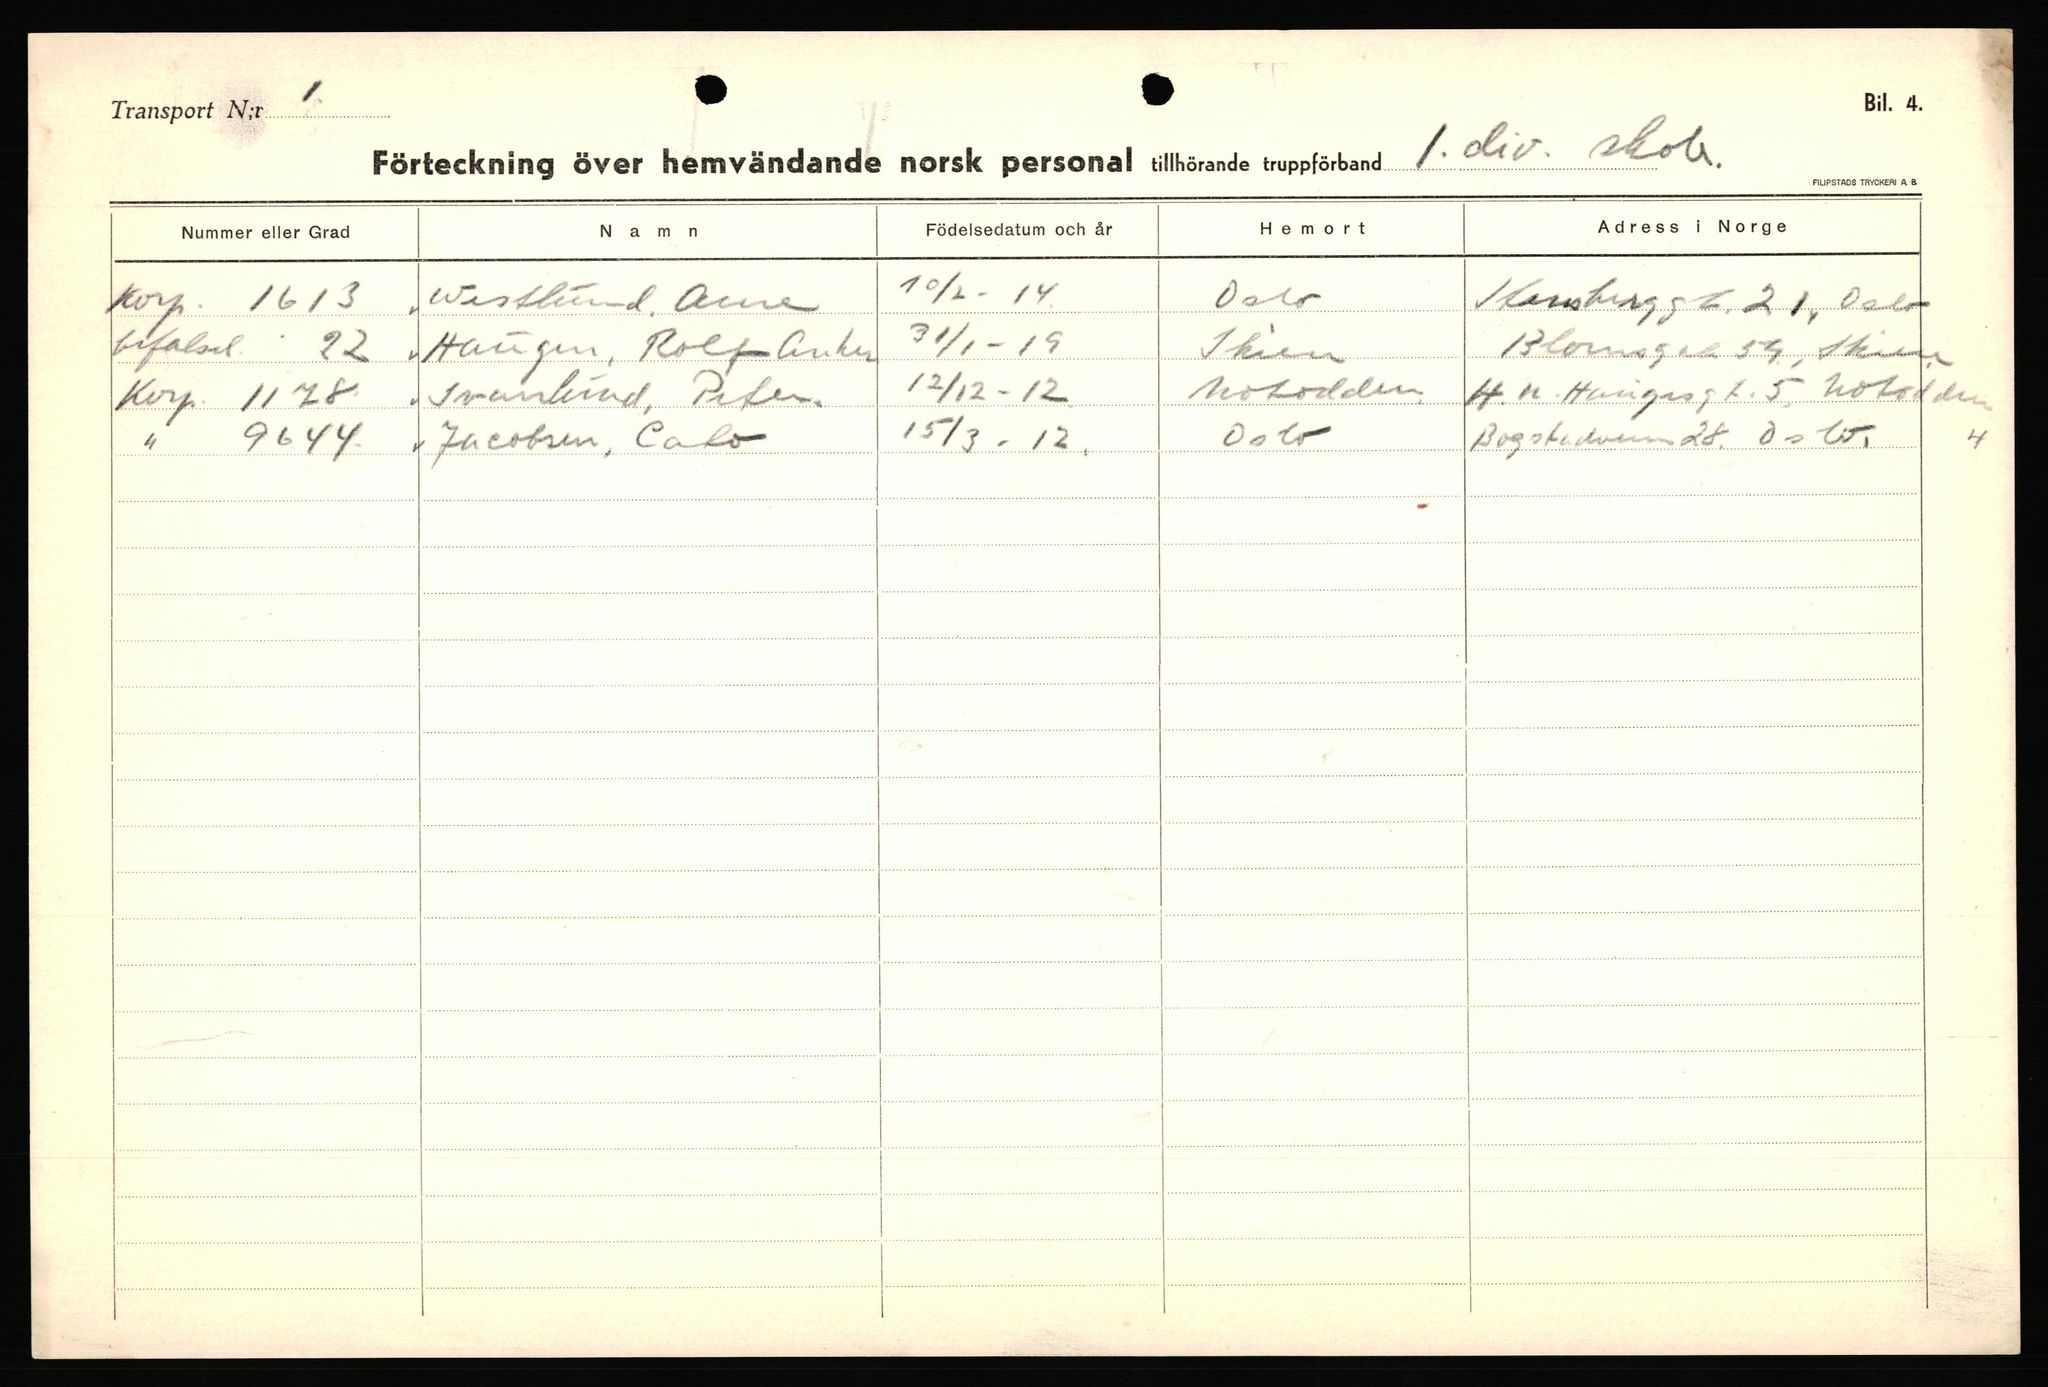 Transport N:r 1.
Bil. 4.
Förteckning över hemvändande norsk personal tillhörande truppförband 1. div. skole.
FILIPSTADS TRYCKERI A. B.
Nummer eller Grad Namn Födelsedatum och år Hemort Adress i Norge
Korp. 1613 Westlund, Arne 10/2 - 14. Oslo 21, Oslo
befalsel. 22 Haugen, Rolf Anker 31/1 - 19 Skien 59, Skien
Korp. 1178. Svanlund, Peter. 12/12 - 12 Notodden H. N. Haugesgt. 5, Notodden
" 9644. Jacobsen, Cato 15/3 - 12. Oslo Bogstadveien 28. Oslo. 4